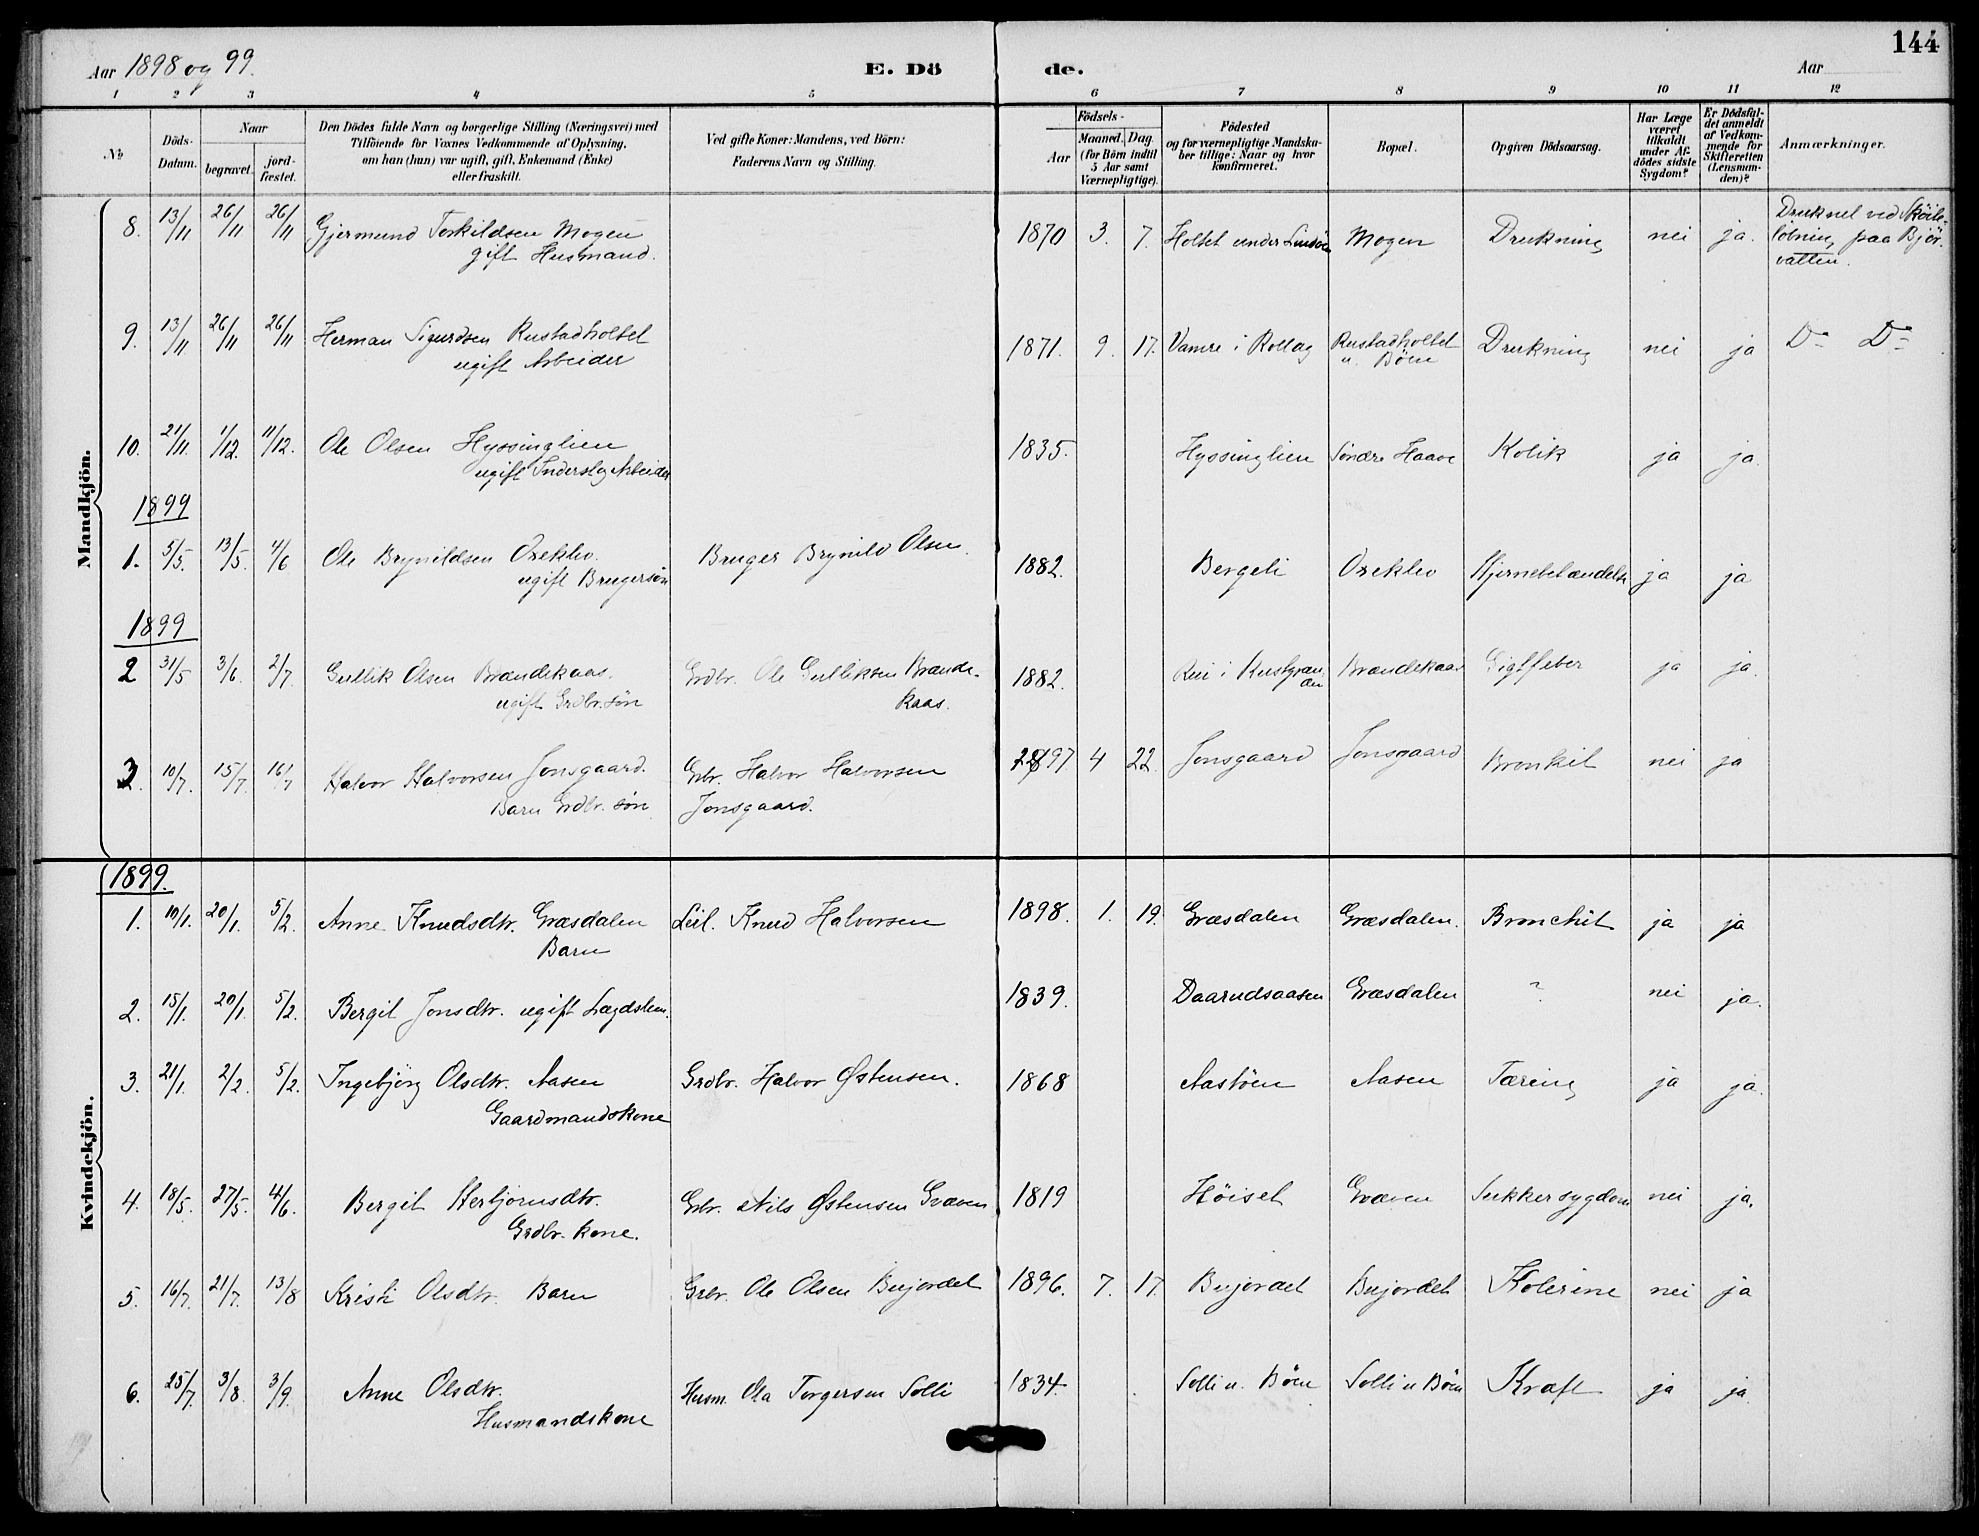 144
Aar 1898 og 99.
E. Dö
de.
Aar
1 2 3 4 5 6 7 8 9 10 11 12
No
Döds-Datum.
Naar
begravet.
jord-fæstet.
Den Dödes fulde Navn og borgerlige Stilling (Næringsvei) med
Tilföiende for Voxnes Vedkommende af Oplysning,
om han (hun) var ugift, gift, Enkemand (Enke)
eller fraskilt.
Ved gifte Koner: Mandens, ved Börn:
Faderens Navn og Stilling.
Födsels-
Aar
Maaned. Dag.
(for Börn indtil
5 Aar samt
Værnepligtige).
Födested
og for værnepligtige Mandska-
ber tillige: Naar og hvor
konfirmeret.
Bopæl.
Opgiven Dödsaarsag.
Har Læge
været
tilkaldt
under Af-
dödes sidste
Sygdom?
Er Dödsfal-
det anmeldt
af Vedkom-
mende for
Skifteretten
(Lensman-
den)?
Anmærkninger.
Mandkjön.
8. 13/11 26/11 26/11 Gjermund Torkildsen Mogen 1870 3. 7. Holtet under Mogen Drukning nei ja. Druknet ved Sköite-
gift Husmand. löbning paa Björ-
vatten.
9. 13/11 26/11 26/11 Herman Sigurdsen Rustadholtet 1871. 9. 17. Vamre i Rollag Rustadholtet Drukning nei ja Do Do
ugift Arbeider u. Böen
10. 21/11. 1/12. 11/12. Ole Olsen Hyssinglien 1835. Hyssinglien Söndre Haave Kolik ja ja.
ugift Arbeider
1899
1. 5/5. 13/5. 4/6 Ole Brynildsen Orekleo. Bruger Brynild Olsen. 1882. Bergeli Orekleo Hjernebetændelse ja ja
ugift Brugersön
1899
2 31/5 3/6. 2/7. Gullik Olsen Brændekaas. Grdbr. Ole Gulliksen Brænde- 1882. i Brændekaas Gigtfeber ja ja.
ugift Grdbr. sön kaas.
3. 10/7. 15/7. 16/7 Halvor Halvorsen Jonsgaard. Gbr. Halvor Halvorsen 1897 4 22. Jonsgaard Jonsgaard Bronkit nei ja
Barn Grdbr. sön Jonsgaard.
Kvindekjön.
1899.
1. 10/1. 20/1. 5/2. Anne Knudsdtr. Græsdalen Leil. Knud Halvorsen 1898. 1. 19. Græsdalen Græsdalen. Bronchit ja ja
Barn
2. 15/1. 20/1. 5/2. Bergit Jonsdtr. ugift Lægdslem. 1839. Daarudsaasen Græsdalen ? nei ja.
3. 21/1. 2/2. 5/2. Ingebjörg Olsdtr. Aasen Grdbr. Halvor Østensen. 1868 Aasen Tæring ja ja.
Gaardmandskone
4. 18/5. 27/5. 4/6. Bergit Herbjörnsdtr. Gbr. Nils Østensen Græven 1819 Höiset Græven Sukkersygdom nei ja.
Grdbr. kone.
5. 16/7. 21/7. 13/8 Kristi Olsdtr. Barn Grbr. Ole Olsen Bujordet 1896. 7. 17. Bujordet Bujordet Kolerine nei ja
6. 25/7. 3/8. 3/9. Anne Olsdtr. Husm. Ola Torgersen Solli 1834. Solli u. Böen Solli u Böen Kræft ja ja.
Husmandskone